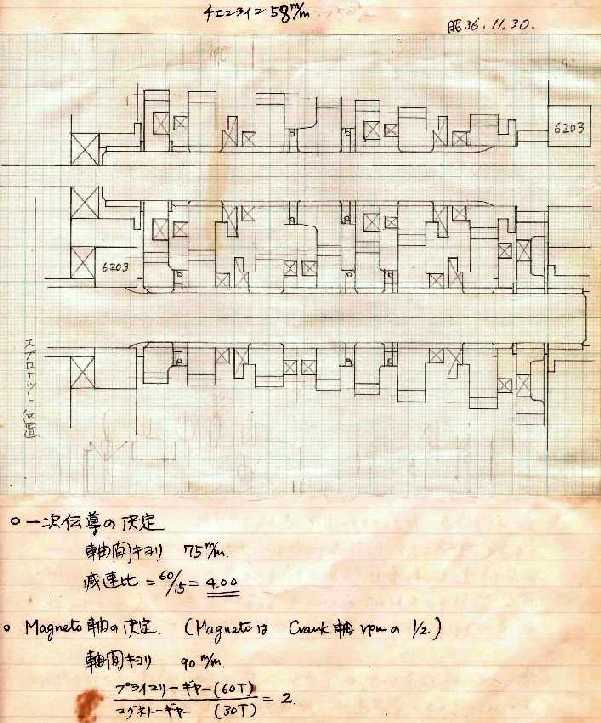 チエンライン 58 m/m
昭36.11.30.
6203
6203
スプロケット側
○一次伝導の決定
軸間キヨリ 75 m/m.
減速比 = 60/15 = 4.00
○ Magneto 軸の決定. (Magnetoは Crank 軸 rpm の 1/2.)
軸間キヨリ 90 m/m
プライマリーギヤー (60T)
マグネトーギヤー (30T) = 2.